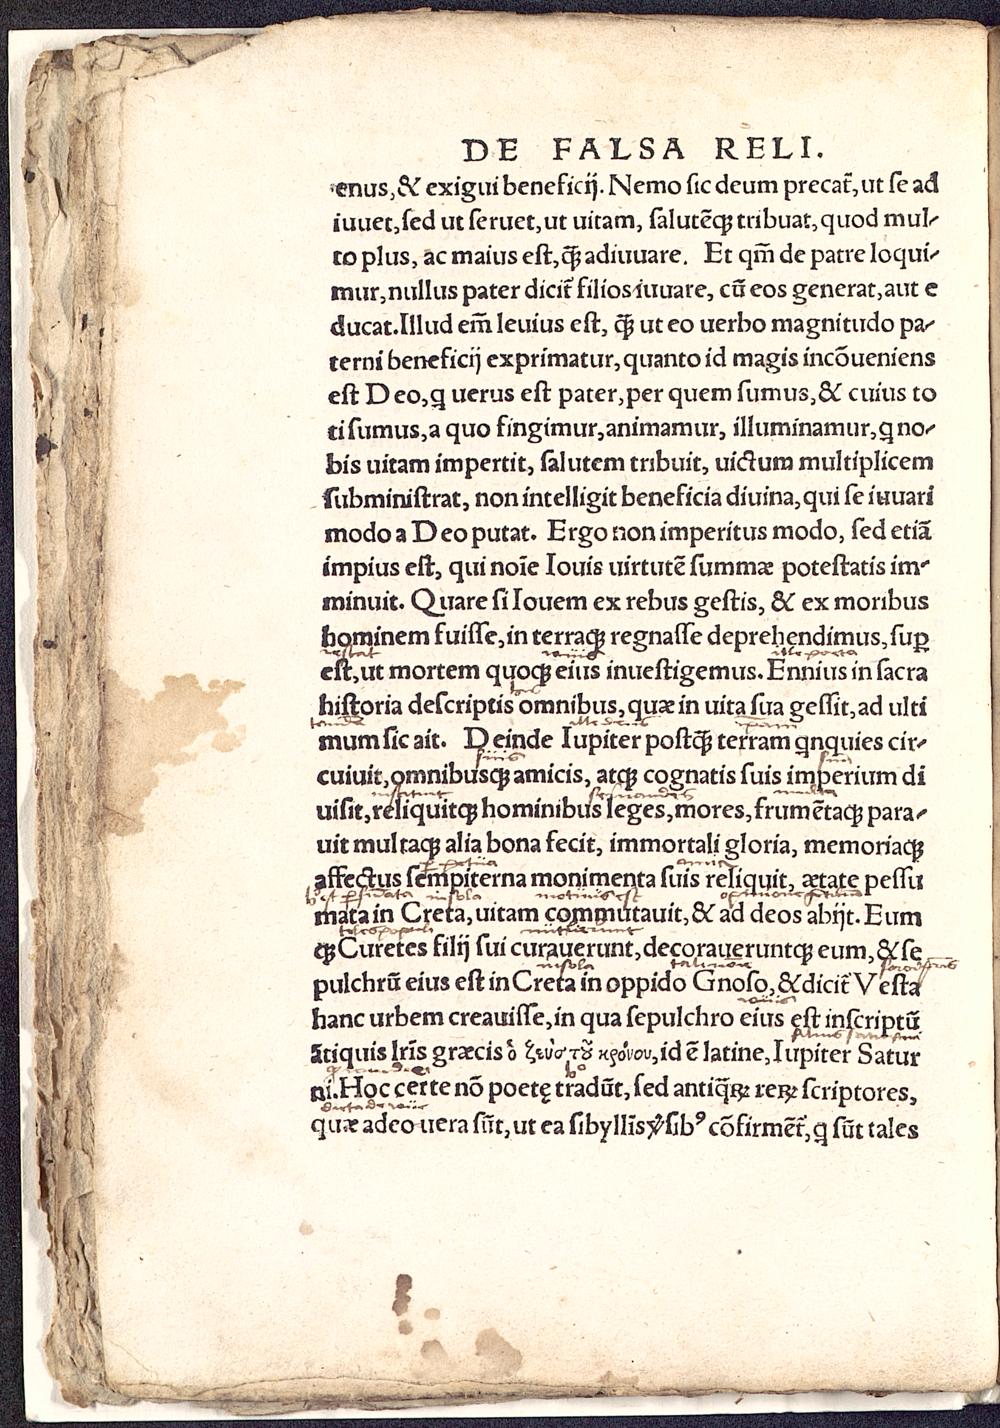 DE FALSA RELI.
enus, & exigui beneficij. Nemo sic deum precat᷑, ut se ad
iuuet, sed ut seruet, ut uitam, salutēq́ꝫ tribuat, quod mul-
to plus, ac maius est, q̃ꝫ adiuuare. Et qm̄ de patre loqui-
mur, nullus pater dicit᷑ filios iuuare, cū eos generat, aut e
ducat. Illud em̄ leuius est, q̃ꝫ ut eo uerbo magnitudo pa-
terni beneficij exprimatur, quanto id magis incōueniens
est Deo, q uerus est pater, per quem sumus, & cuius to
ti sumus, a quo fingimur, animamur, illuminamur, q no-
bis uitam impertit, salutem tribuit, uictum multiplicem
subministrat, non intelligit beneficia diuina, qui se iuuari
modo a Deo putat. Ergo non imperitus modo, sed etiā
impius est, qui noīe Iouis uirtutē summæ potestatis im-
minuit. Quare si Iouem ex rebus gestis, & ex moribus
hominem fuisse, in terraq́ꝫ regnasse deprehendimus, suꝑ
restat ille poeta
est, ut mortem quoq́ꝫ eius inuestigemus. Ennius in sacra
historia descriptis omnibus, quæ in uita sua gessit, ad ulti
mum sic ait. Deinde Iupiter postq̃ꝫ terram qnquies cir-
cuiuit, omnibusq́ꝫ amicis, atq́ꝫ cognatis suis imperium di
uisit, reliquitq́ꝫ hominibus leges, mores, frumētaq́ꝫ para-
uit multaq́ꝫ alia bona fecit, immortali gloria, memoriaq́ꝫ
affectus sempiterna monimenta suis reliquit, ætate pessu
insula
mata in Creta, uitam commutauit, & ad deos abijt. Eum
q́ꝫ Curetes filij sui curauerunt, decoraueruntq́ꝫ eum, & se
insula
pulchrū eius est in Creta in oppido Gnoso, & dicit᷑ Vesta
hanc urbem creauisse, in qua sepulchro eius est inscriptū
ātiquis lr̄is græcis ὁ ζεὺσ τȣ͂ κρόνου, id ē latine, Iupiter Satur
ni. Hoc certe nō poetę tradūt, sed antiqꝝ reꝝ scriptores,
quæ adeo uera sūt, ut ea sibyllīs ỹsibꝰ cōfirmēt᷑, q sūt tales